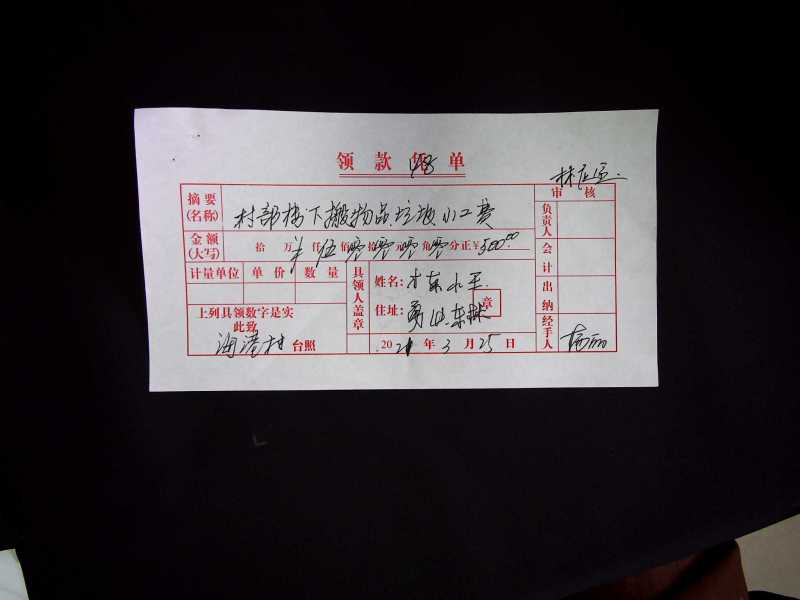 领款凭单
摘要
(名称)
村部楼下搬物品垃圾小工费
审核
金额
(大写)
拾万仟佰拾元角分正¥500.00
伍零零零零
计量单位 单价 数量
具领人盖章
姓名:
住址:
章
负责人
会计
出纳
经手人
上列具领数字是实
此致
海港村 台照
2021年3月25日